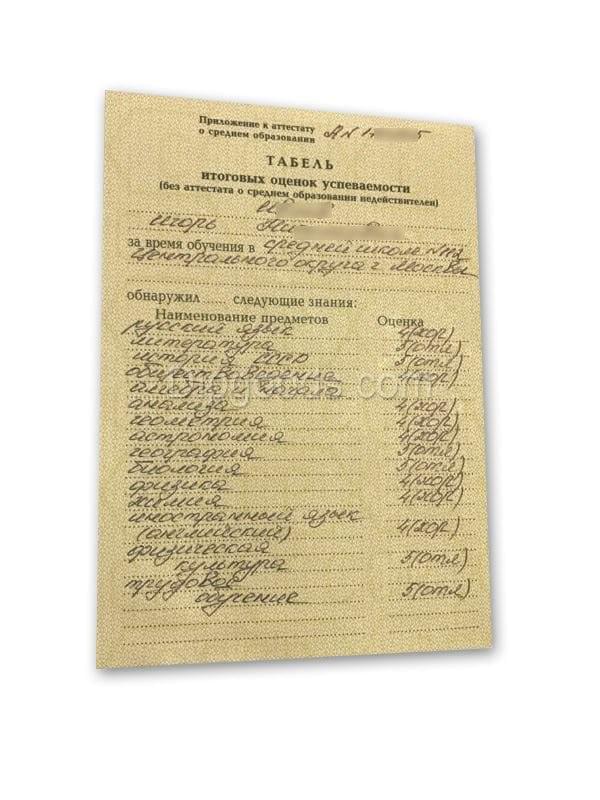 Приложение к аттестату
о среднем образовании
ТАБЕЛЬ
итоговых оценок успеваемости
(без аттестата о среднем образовании недействителен)
Игорь
за время обучения в средней школе №112
Центрального округа г. Москвы
обнаружил ..... следующие знания:
Наименование предметов Оценка
русский язык 4(хор)
литература 5(отл)
история СССР 5(отл)
обществоведение 4(хор)
алгебра и начала
анализа 4(хор)
геометрия 4(хор)
астрономия 4(хор)
география 5(отл)
биология 5(отл)
физика 4(хор)
химия 4(хор)
иностранный язык
(английский) 4(хор)
физическая
культура 5(отл)
трудовое
обучение 5(отл)